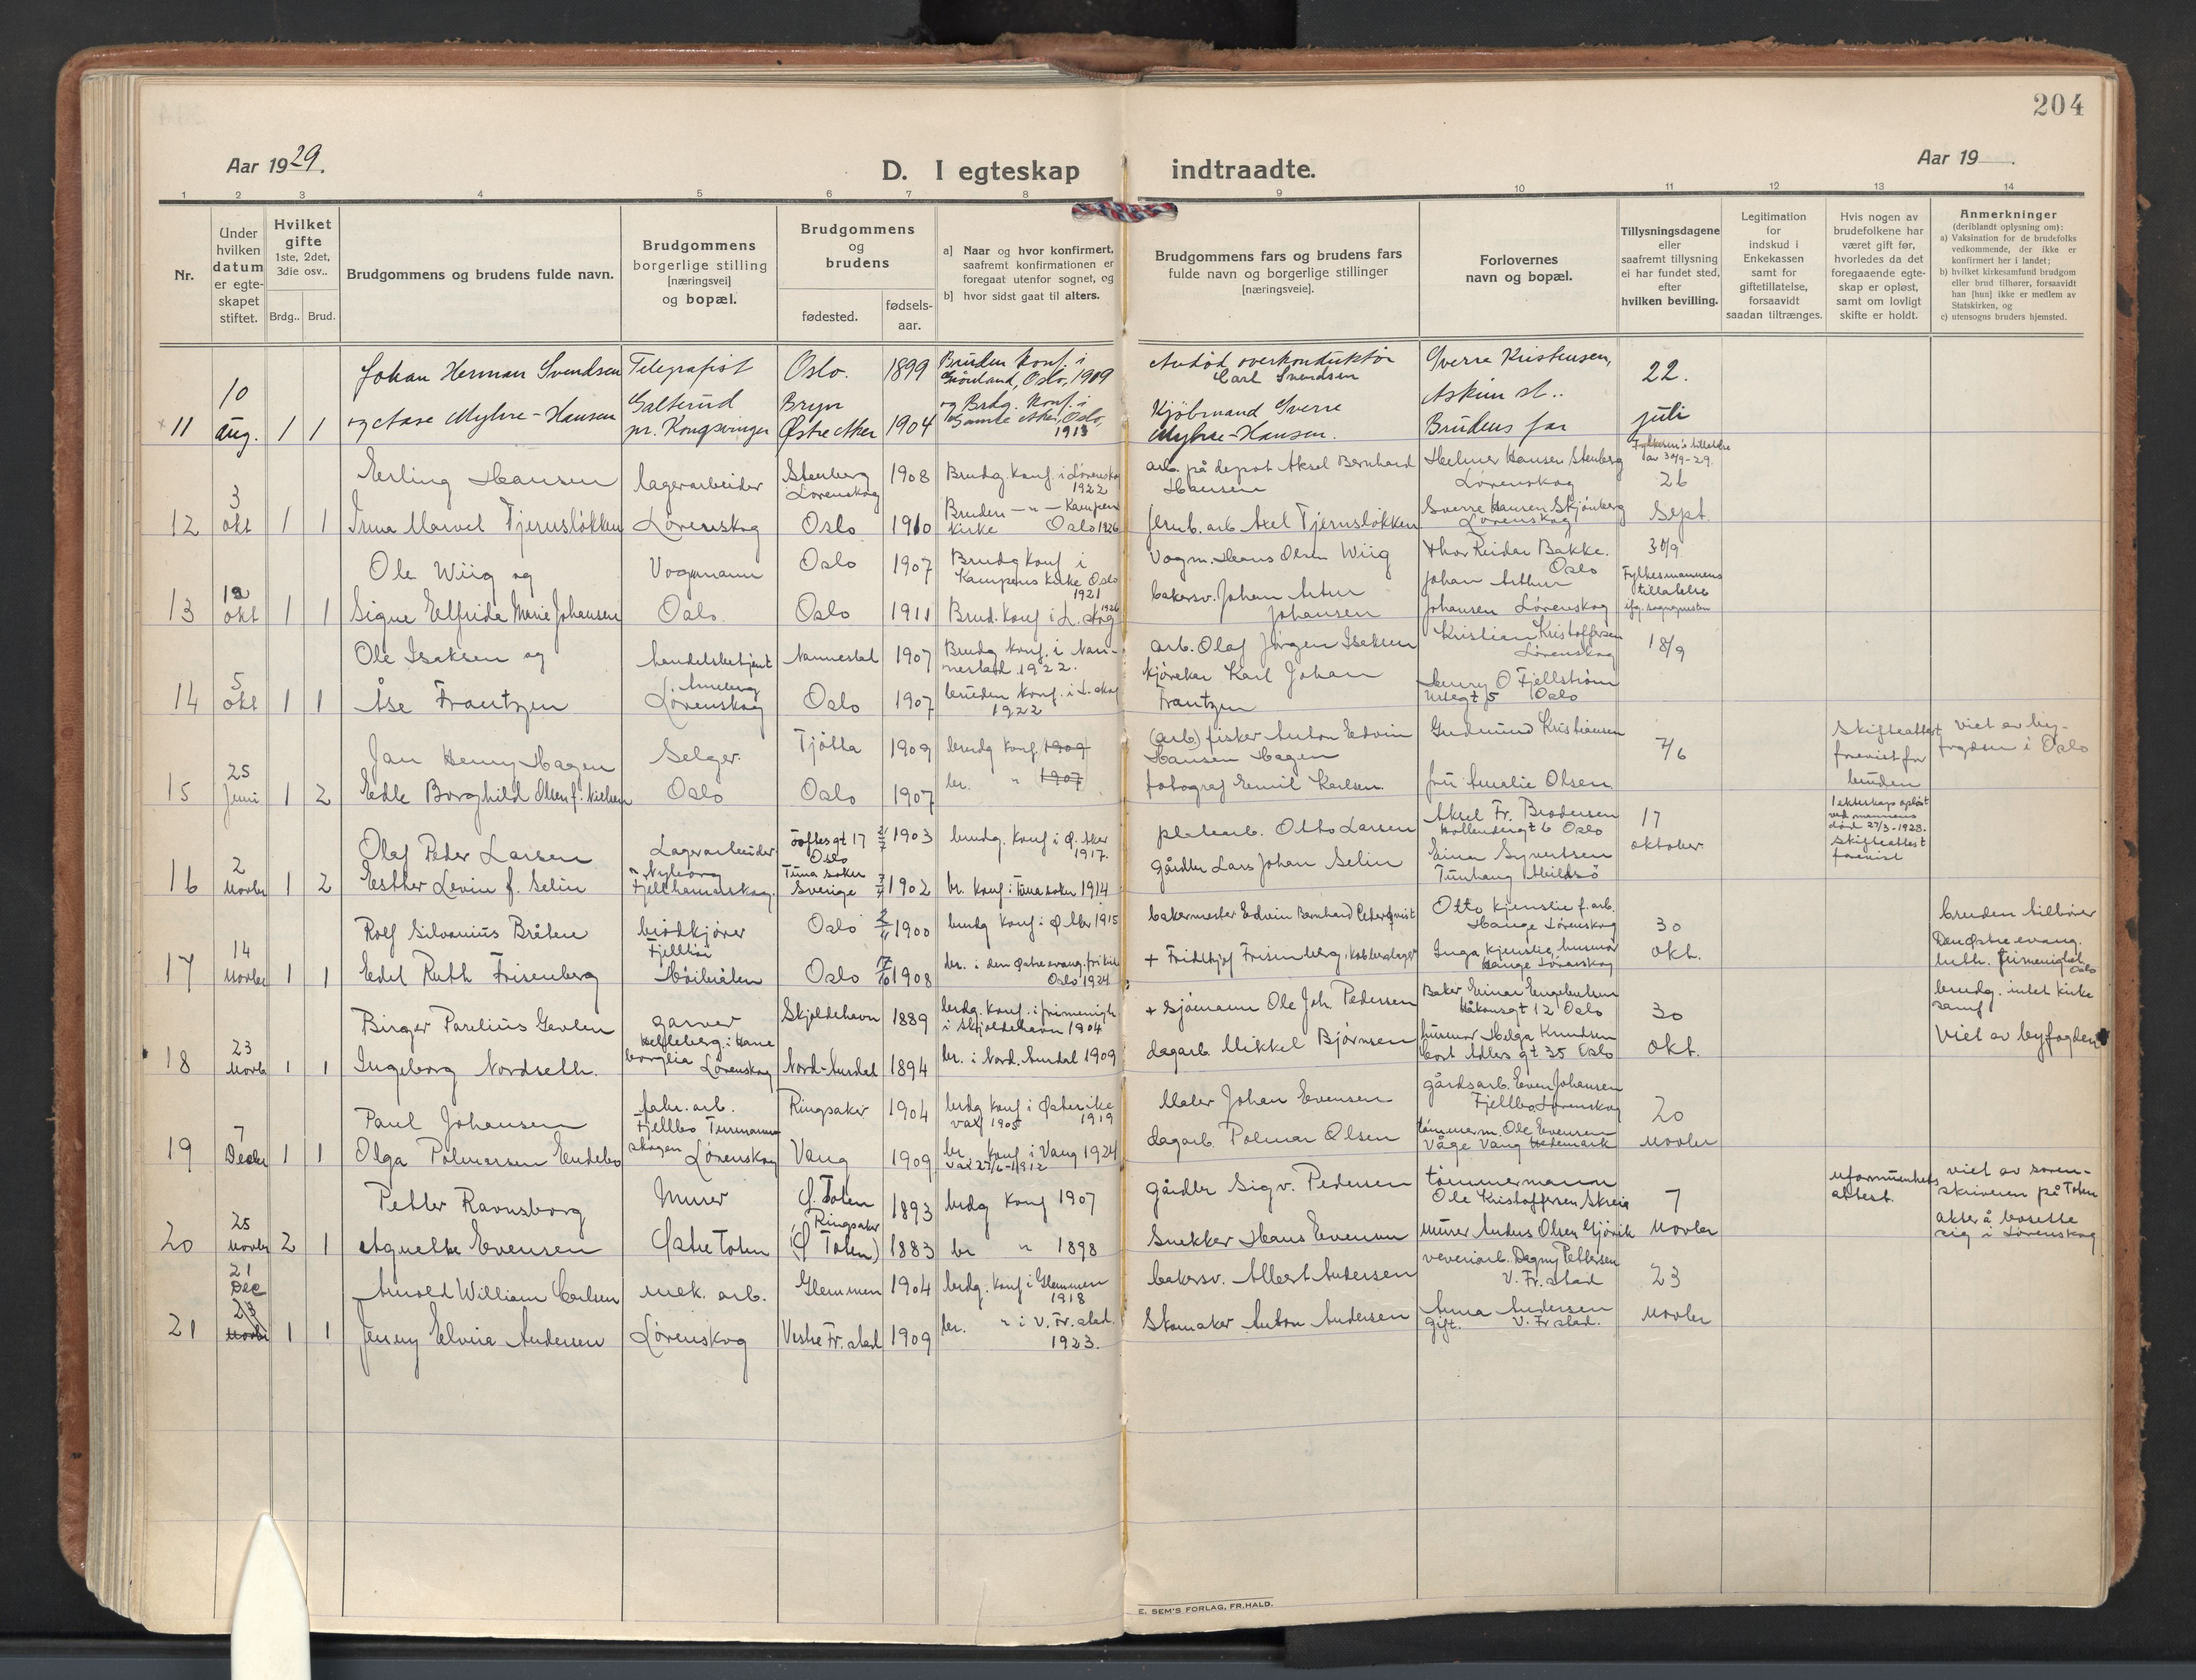 204
Aar 1929.
D. I egteskap indtraadte.
Aar 19 .
1 2 3 4 5 6 7 8 9 10 11 12 13 14
Nr.
Under hvilken datum er egte-skapet stiftet.
Hvilket gifte
1ste, 2det, 3die osv..
Brdg.. Brud.
Brudgommens og brudens fulde navn.
Brudgommens borgerlige stilling [næringsvei] og bopæl.
Brudgommens og brudens
fødested.
fødsels-aar.
a] Naar og hvor konfirmert, saafremt konfirmationen er foregaat utenfor sognet, og
b] hvor sidst gaat til alters.
Brudgommens fars og brudens fars fulde navn og borgerlige stillinger [næringsveie].
Forlovernes navn og bopæl.
Tillysningsdagene eller saafremt tillysning ei har fundet sted, efter hvilken bevilling.
Legitimation for indskud i Enkekassen samt for giftetillatelse, forsaavidt saadan tiltrænges.
Hvis nogen av brudefolkene har været gift før, hvorledes da det foregaaende egte-skap er opløst, samt om lovligt skifte er holdt.
Anmerkninger
(deriblandt oplysning om):
a) Vaksination for de brudefolks vedkommende, der ikke er konfirmert her i landet;
b) hvilket kirkesamfund brudgom eller brud tilhører, forsaavidt han [hun] ikke er medlem av Statskirken, og
c) utensogns bruders hjemsted.
Johan Herman Svendsen Telegrafist Oslo. 1899 Bruden konf. i Grönland, Oslo, 1909 Avdöd overkonduktör Carl Svendsen Sverre Kristensen, Askim st.. 22.
11 10 Aug. 1 1 og Aase Myhre-Hansen Galterud pr. Kongsvinger Bryn Østre Aker 1904 og Brdg. Konf. i Gamle Aker, Oslo, 1913 Kjöbmand Sverre Myhre-Hansen. Brudens far juli
Erling Hansen lagerarbeider Stenberg Lørenskog 1908 Brudg. konf. i Lørenskog 1922 arb. på depot Aksel Bernhard Hansen Helmer Hansen Stenberg Lørenskog Fylkesm's tillatelse av 30/9-29. 26
12 3 okt 1 1 Irma Marvel Tjernsløkken Lørenskog Oslo 1910 Bruden — " — Kampen kirke Oslo 1926 jernb. arb Axel Tjernsløkken Sverre Hansen Skjønberg Lørenskog Sept.
Ole Wiig og Vognmann Oslo 1907 Brudg konf i Kampens kirke Oslo 1921 Vogm. Hans Olsen Wiig Thor Reidar Bakke. Oslo 30/9
13 12 okt 1 1 Signe Elfrida Marie Johansen Oslo. Oslo 1911 Brud. konf i L. skog 1926 bakersv. Johan Artur Johansen Johan Arthur Johansen Lørenskog Fylkesmannens tillatelse
Ole Isaksen og handelsbetjent Nannestad 1907 Brudg konf. i Nannestad 1922. arb. Olaf Jørgen Isaksen Kristian Kristoffersen Lørenskog 18/9
14 5 okt 1 1 Åse Frantzen Lørenskog Oslo 1907 bruden konf. i L. skog 1922 kjørekar Karl Johan Frantzen Henry O Fjellstrøm Urtegt 5 Oslo
Jan Henry Hagen Selger. Tjøtta 1909 brudg konf. 1909 (arb) fisker Anton Edvin Hansen Hagen Gudmund Kristiansen 7/6 Skifteattest forevist for bruden viet av byfogden i Oslo
15 25 Juni 1 2 Edle Borghild Olsen f. Nielsen Oslo Oslo 1907 br. " 1907 fotograf Emil Karlsen. fru Amalie Olsen
Olaf Peder Larsen Lagerarbeider Toftesgt 17 Oslo 1903 brudg. konf i Ø. Aker 1917. Otto Larsen Aksel Fr. Brodersen Hollendergt 6 Oslo 17 oktober 1 ekteskap opløst ved mannens død 27/3-1928. Skifteattest forevist
16 2 Novbr 1 2 Esther Levin f. Selin Nyborg Fjellhamarskog. Tuna soken Sverige 1902 br. konf i Tuna soken 1914 gårdbr Lars Johan Selin Einar Syvertsen
Rolf Silvanius Bråten brødkjører Oslo 1900 brudg konf i Ø Aker 1915 bakermester Edvin Bernhard Otto Kjenslie f. arb. Hauge Lørenskog 30 bruden tilhører Den østre evang. luth. frimenighet Oslo
17 14 Novbr 1 1 Edel Ruth Frisenberg Fjellhøi Oslo 1908 br. i den østre evang. frikirke Oslo 1924 + Fridthjof Frisenberg, kobberslager Inga Kjenslie, husmor Hauge Lørenskog okt.
Birger Parelius Gevlen garver Skjoldehavn 1889 brdg. konf. i frimenigh i Skjoldehavn 1904 + sjømann Ole Joh. Pedersen Baker Einar Engebretsen Håkonsgt 12 Oslo 30 brudg. intet kirkesamf
18 23 Novbr 1 1 Ingeborg Nordseth. Lørenskog Nord-Aurdal 1894 br. i Nord. Aurdal 1909 dagarb. Mikkel Bjørnsen husmor Helga Knudsen Cort Adlers gt 35 Oslo okt. Viet av byfogden
Paul Johansen fabr. arb. Ringsaker 1904 brdg konf i Østerrike 1919 vax 1905 Maler Johan Evensen gårdsarb. Even Johansen Fjellbo, Lørenskog 20
19 7 Decbr 1 1 Olga Polmarsen Endebo Fjellbo Lørenskog Vang 1909 br. konf i Vang 1924 dagarb Polmar Olsen tømmerm. Ole Evensen Våge Vang Hedemark Novbr
Petter Ravnsborg Murer Ø. Toten 1893 brdg konf 1907 gårdbr Sigv. Pedersen tømmermann Ole Kristoffersen Skreia 7 uformuenhets attest. viet av sorenskriveren på Toten
20 25 Novbr 2 1 Agnethe Evensen Østre Toten Ringsaker (Ø Toten) 1883 br " 1898 Snekker Hans Evensen murer Anders Olsen Gjövik Novbr akter å bosette sig i Lørenskog
Arnold William Carlsen mek. arb. Glemmen 1904 brdg. konf i Glemmen 1918 bakersv. Albert Andersen veveriarb. Dagny Pettersen V. Fr. stad 23
21 21 Dec 23 Novbr 1 1 Jenny Elvira Andersen Lørenskog Vestre Fr. stad 1909 br. " i V. Fr. stad. 1923. Skomaker Anton Andersen Anna Andersen gift. V. Fr stad. Novbr
E. SEM'S FORLAG, FR.HALD.